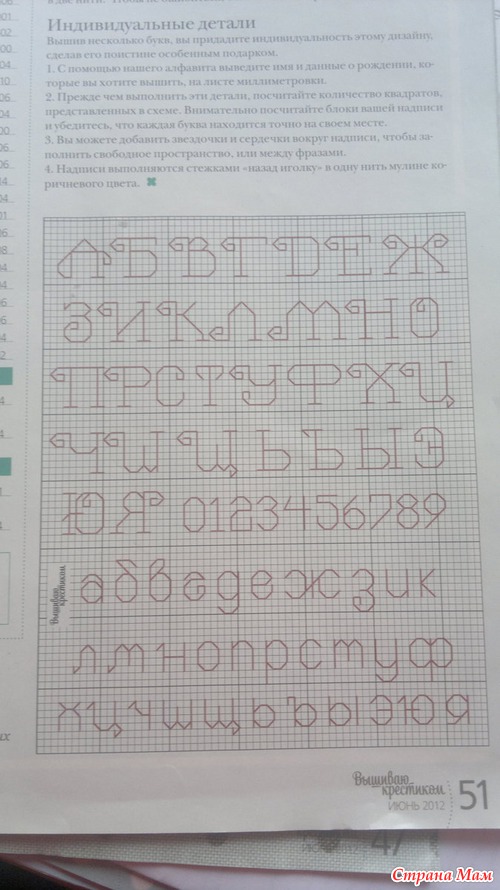 Индивидуальные детали
Вышив несколько букв, вы придадите индивидуальность этому дизайну,
сделав его поистине особенным подарком.
1. С помощью нашего алфавита выведите имя и данные о рождении, ко-
торые вы хотите вышить, на листе миллиметровки.
2. Прежде чем выполнить эти детали, посчитайте количество квадратов,
представленных в схеме. Внимательно посчитайте блоки вашей надписи
и убедитесь, что каждая буква находится точно на своем месте.
3. Вы можете добавить звездочки и сердечки вокруг надписи, чтобы за-
полнить свободное пространство, или между фразами.
4. Надписи выполняются стежками «назад иголку» в одну нить мулине ко-
ричневого цвета.
А Б В Г D Е Ж
З И К Л М Н О
П Р С Т У Ф Х Ц
Ч Ш Щ Ь Ъ Ы Э
Ю Я 0123456789
а б в г д е ж з и к
л м н о п р с т у ф
х ц ч ш щ ь ъ ы э ю я
Вышиваю
крестиком
Вышиваю
крестиком
ИЮНЬ 2012
51
47
Страна Мам